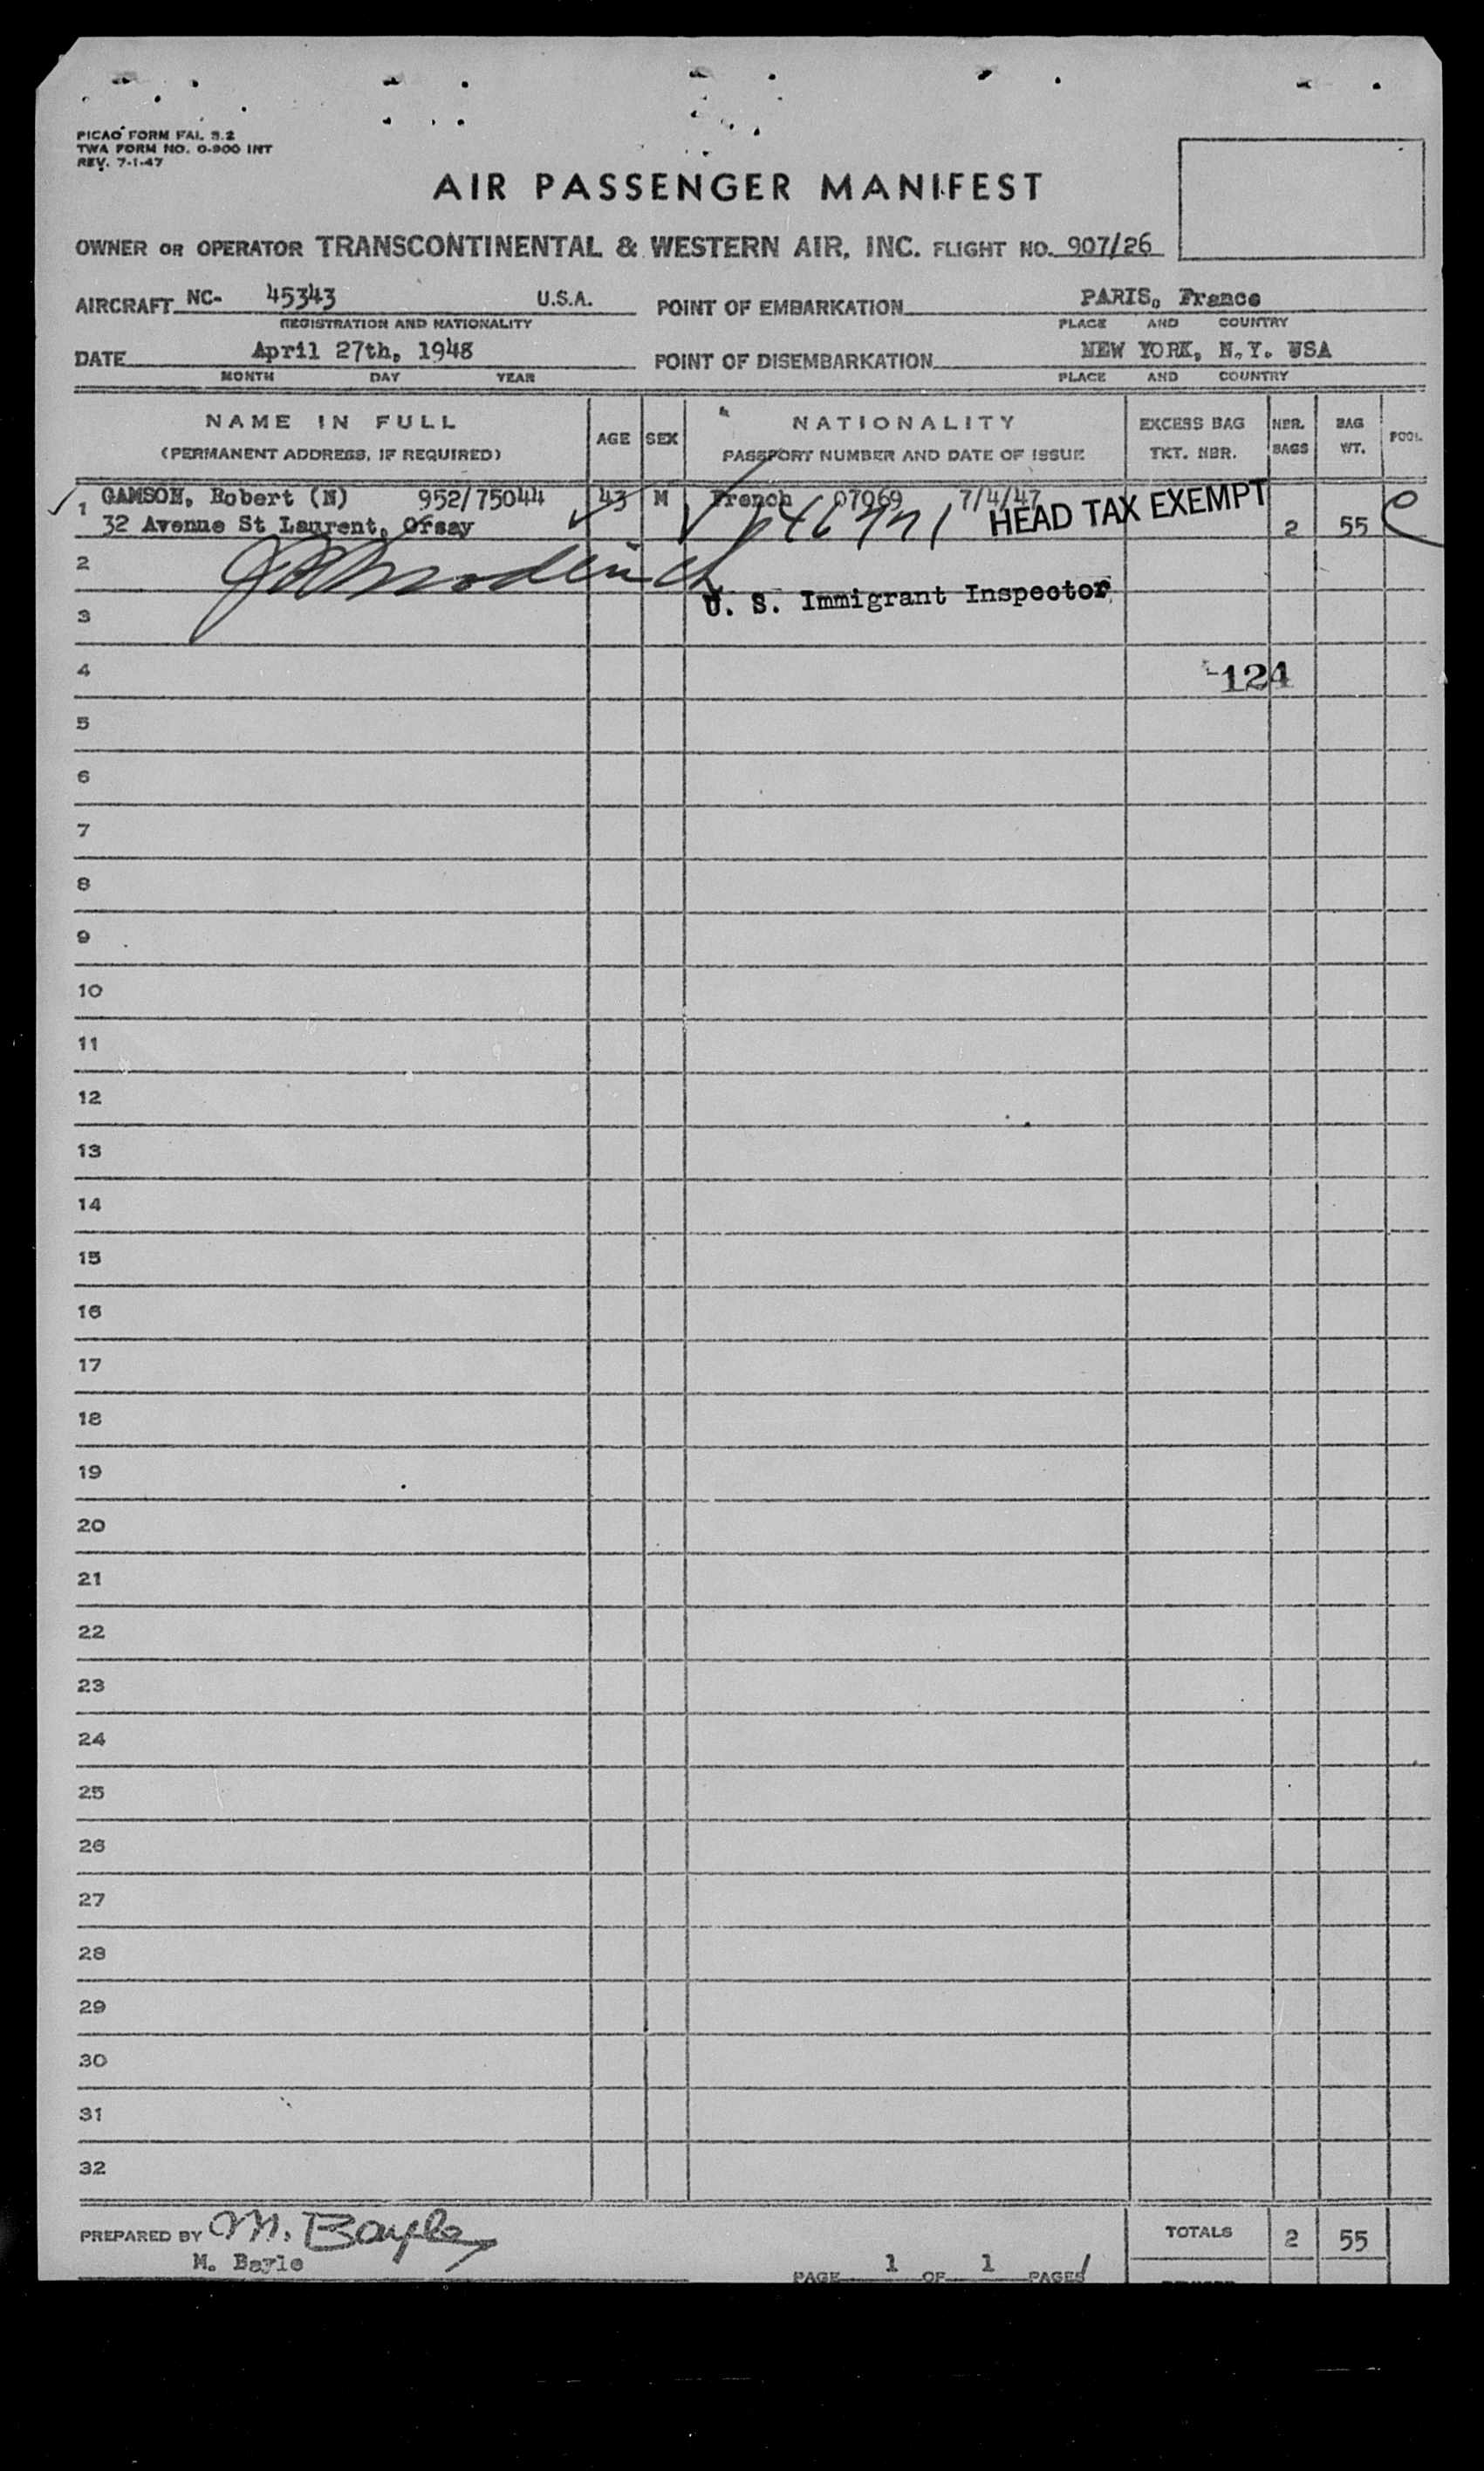 PICAO FORM FAL 3.2
TWA FORM NO. O-900 INT
REV. 7-1-47
AIR PASSENGER MANIFEST
OWNER OR OPERATOR TRANSCONTINENTAL & WESTERN AIR, INC. FLIGHT NO. 907/26
AIRCRAFT NC- 45343 U.S.A. POINT OF EMBARKATION PARIS, France
REGISTRATION AND NATIONALITY PLACE AND COUNTRY
DATE April 27th, 1948 POINT OF DISEMBARKATION NEW YORK, N.Y. USA
MONTH DAY YEAR PLACE AND COUNTRY
NAME IN FULL AGE SEX NATIONALITY EXCESS BAG NBR. BAG POOL
(PERMANENT ADDRESS, IF REQUIRED) PASSPORT NUMBER AND DATE OF ISSUE TKT. NBR. BAGS WT.
1 GAMSON, Robert (N) 952/75044 43 M French 07069 7/4/47
32 Avenue St Laurent, Orsay HEAD TAX EXEMPT 2 55
2
U. S. Immigrant Inspector
3
4 124
5
6
7
8
9
10
11
12
13
14
15
16
17
18
19
20
21
22
23
24
25
26
27
28
29
30
31
32
PREPARED BY M. Bayle TOTALS 2 55
M. Bayle
PAGE 1 OF 1 PAGES